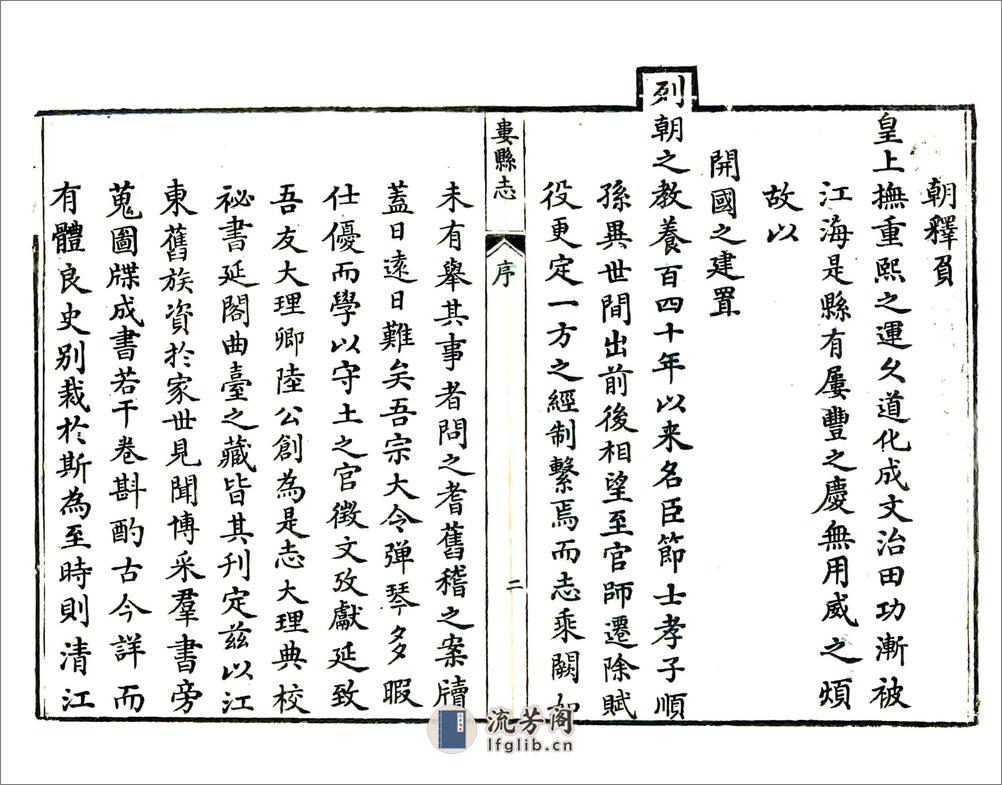 朝釋負
皇上撫重熙之運久道化成文治田功漸被
江海是縣有屢豐之慶無用威之煩
故以
開國之建置
列朝之教養百四十年以来名臣節士孝子順
孫異世間出前後相望至官師遷除賦
役更定一方之經制繫焉而志乘闕如
婁縣志
序
二
未有舉其事者問之耆舊稽之案牘
蓋日遠日難矣吾宗大令彈琴多暇
仕優而學以守土之官徵文攷獻延致
吾友大理卿陸公創為是志大理典校
祕書延閣曲臺之藏皆其刊定兹以江
東舊族資於家世見聞博采羣書旁
蒐圖牒成書若干卷斟酌古今詳而
有體良史別裁於斯為至時則清江
流芳阁
lfglib.cn